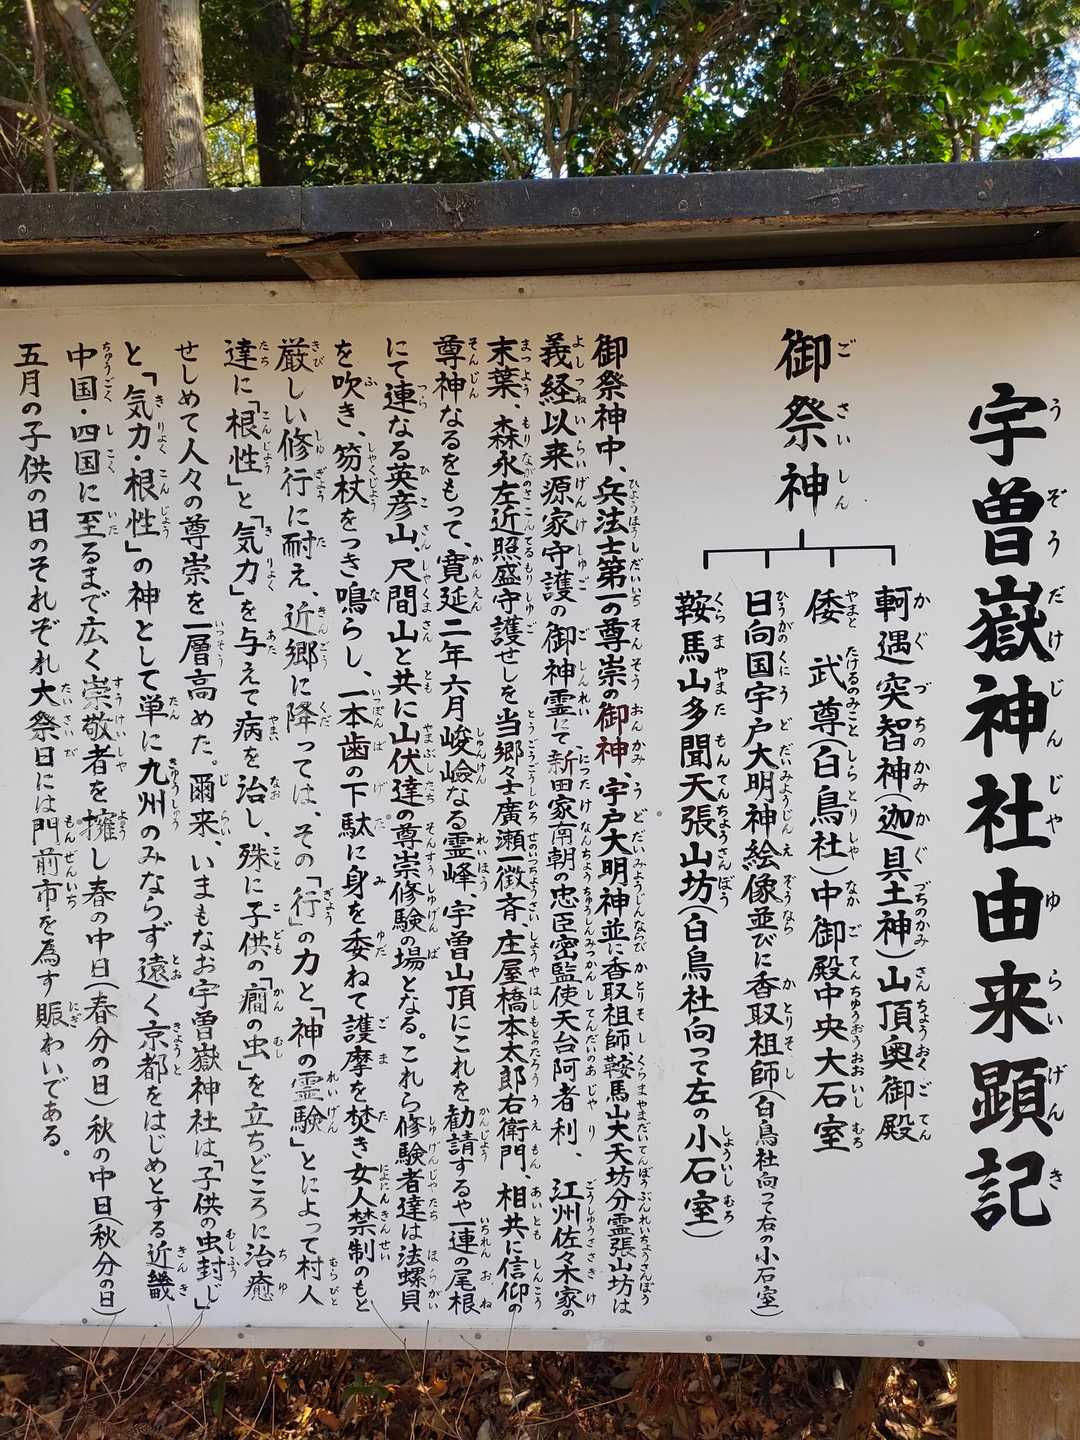 宇曽嶽神社由来顕記
御祭神
軻遇突智神(迦具土神)山頂奥御殿
倭武尊(白鳥社)中御殿中央大石室
日向国宇戸大明神絵像並びに香取祖師(白鳥社向って右の小石室)
鞍馬山多聞天張山坊(白鳥社向って左の小石室)
御祭神中、兵法士第一の尊崇の御神、宇戸大明神並に香取祖師鞍馬山大天坊分霊張山坊は
義経以来源家守護の御神霊にて、新田家南朝の忠臣密監使天台阿者利、江州佐々木家の
末葉、森永左近照盛守護せしを当郷々士廣瀬一徴斉、庄屋橋本太郎右衛門、相共に信仰の
尊神なるをもって、寛延二年六月峻嶮なる霊峰、宇曽山頂にこれを勧請するや一連の尾根
にて連なる英彦山、尺間山と共に山伏達の尊崇修験の場となる。これら修験者達は法螺貝
を吹き、笏杖をつき鳴らし、一本歯の下駄に身を委ねて護摩を焚き女人禁制のもと
厳しい修行に耐え、近郷に降っては、その「行」の力と「神の霊験」とによって村人
達に「根性」と「気力」を与えて病を治し、殊に子供の「癇の虫」を立ちどころに治癒
せしめて人々の尊崇を一層高めた。爾来、いまもなお宇曽嶽神社は「子供の虫封じ」
と「気力・根性」の神として単に九州のみならず遠く京都をはじめとする近畿
中国・四国に至るまで広く崇敬者を擁し春の中日(春分の日)秋の中日(秋分の日)
五月の子供の日のそれぞれ大祭日には門前市を為す賑わいである。